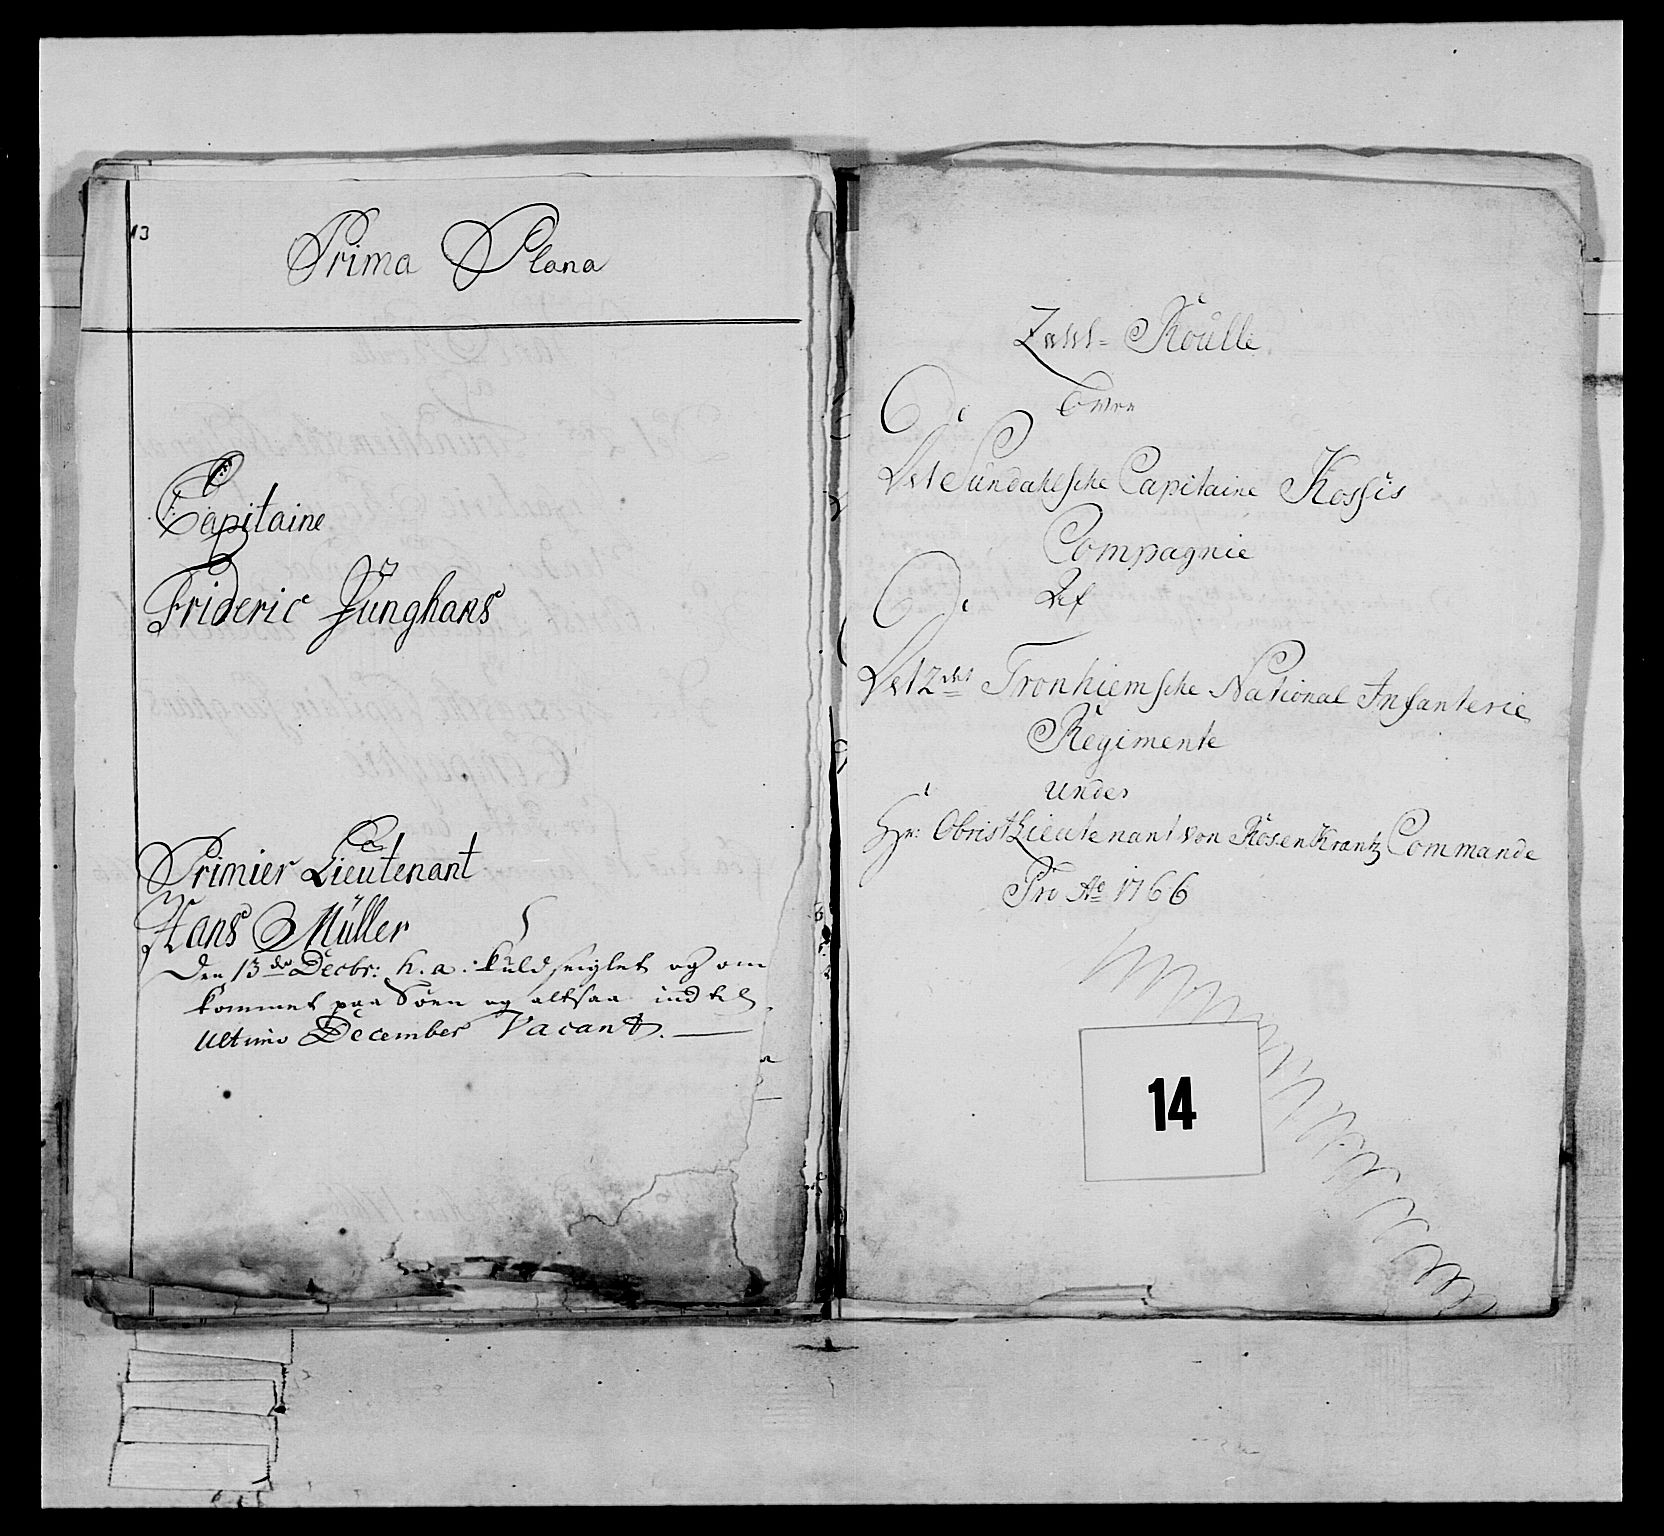 13
Prima Plana
Capitaine
Frideric Jünghans
Primier Lieutenant
Hans Müller
Den 13de Decbr: h. a: kuldseiglet og om
kommet paa Søen og altsaa indtil
Ultimo December Vacant.
Zahl-Roulle
Over
Det Sundahlsche Capitaine Kossis
Compagnie
Af
Det 2det Tronhiemsche National Infanterie
Regimente
Under
Hr: Obrist Lieutenant von Rosen Krantz Commande
Pro Ao 1766
14